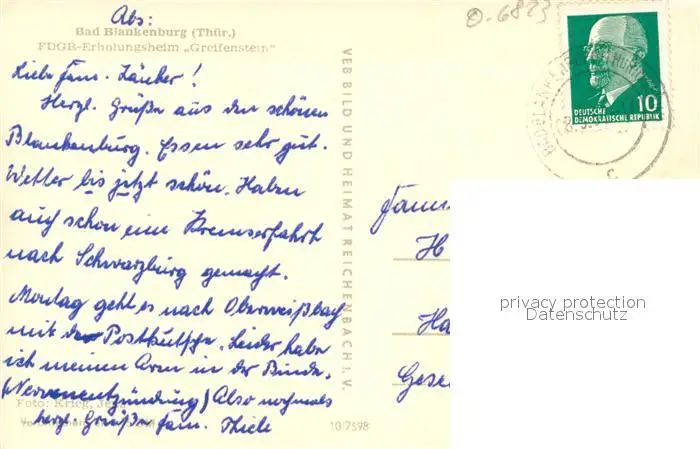 Abs:
Bad Blankenburg (Thür.)
FDGB-Erholungsheim „Greifenstein"
Liebe Fam. Zänker!
Herzl. Grüße aus den schönen
Blankenburg. Essen sehr gut.
Wetter bis jetzt schön. Haben
auch schon eine Kremserfahrt
nach Schwarzburg gemacht.
Montag geht es nach Oberweißbach
mit der Postkutsche. Leider habe
ich meinen Arm in der Binde.
(Nervenentzündung) Also nochmals
herzl. Grüße Fam. Thiele
Foto: Krieg,
10/7598
VEB BILD UND HEIMAT REICHENBACH I. V.
0-6823
10
DEUTSCHE
DEMOKRATISCHE REPUBLIK
BAD BLANKENBURG
c
Fam
H
Ha
Gese
privacy protection
Datenschutz